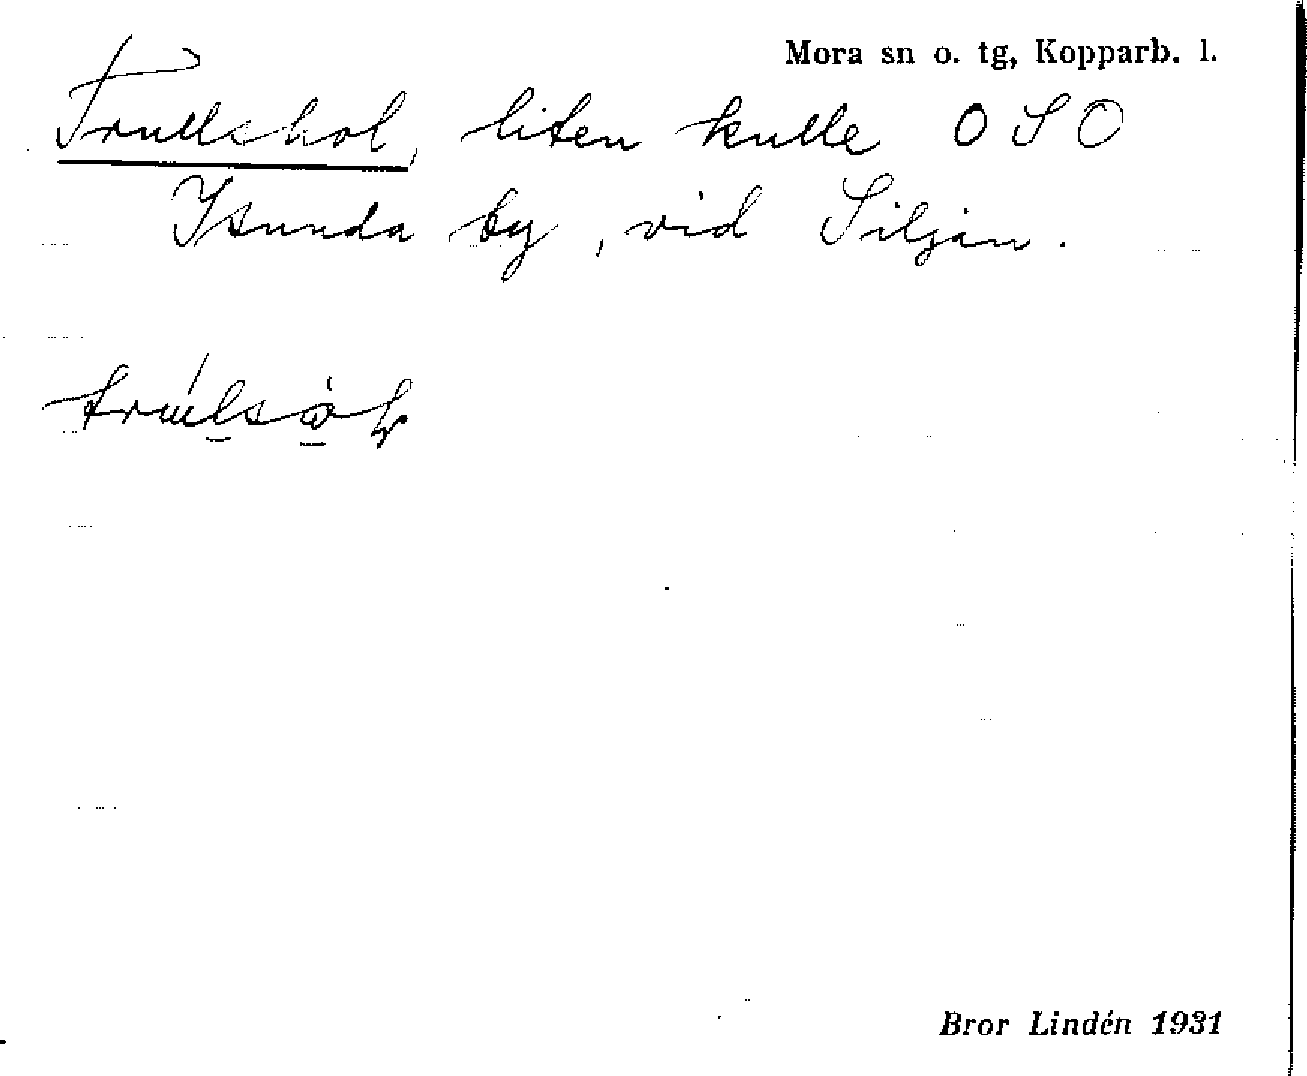 Mora sn o. tg, Kopparb. l.
Trullshol, liten kulle O S O
Isunda by, vid Siljan.
Bror Lindén 1931